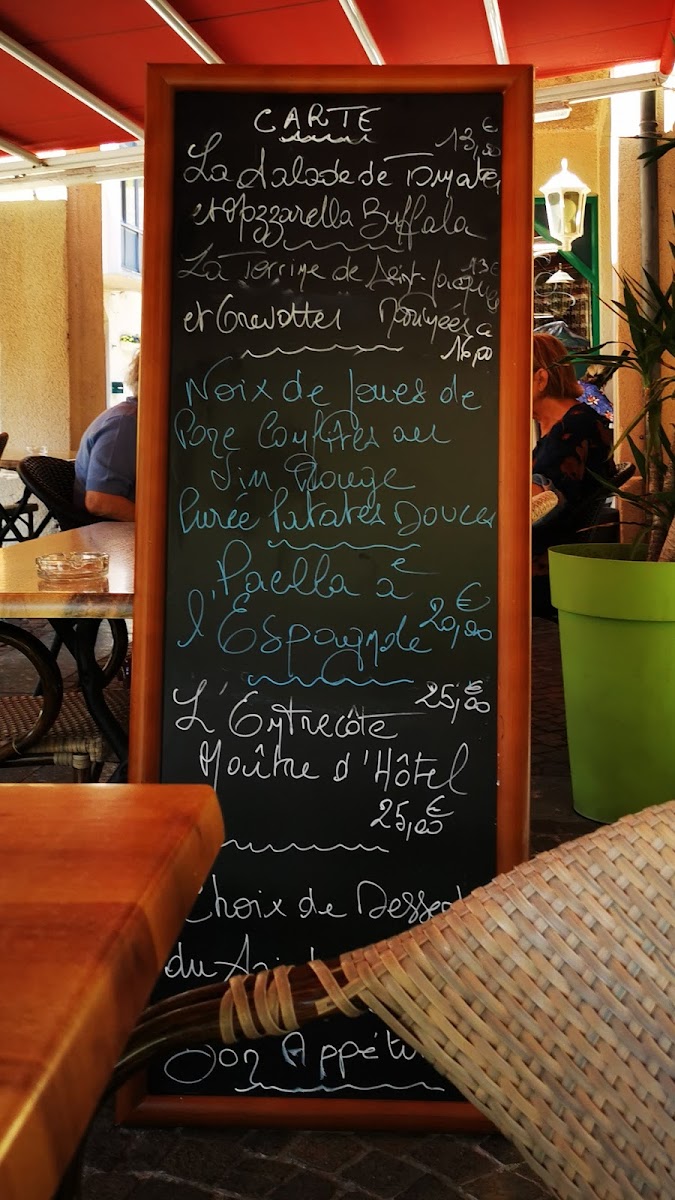 CARTE
13,00€
La Salade de Tomates
et Mozzarella Buffala
La Terrine de Saint-Jacques 13€
et Crevettes
16,00
Noix de Joues de
Porc Confites au
Vin Rouge
Purée Patates Douces
Paella à
l'Espagnole 20,00€
25,00€
L'Entrecôte
Maître d'Hôtel
25,00€
Choix de Dessert
du
Bon Appétit